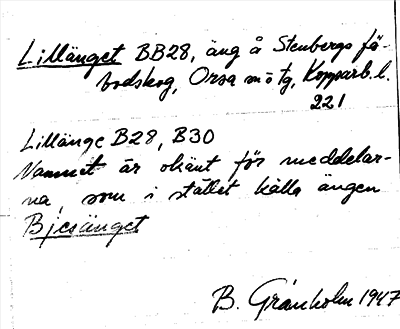 Lillänget BB28, äng å Stenbergs fä-
bodskog, Orsa m o tg, Kopparb. l.
221
Lillänge B28, B30
Namnet är okänt för meddelar-
na, som i stället kalla ängen
Bjesänget
B. Granholm 1947